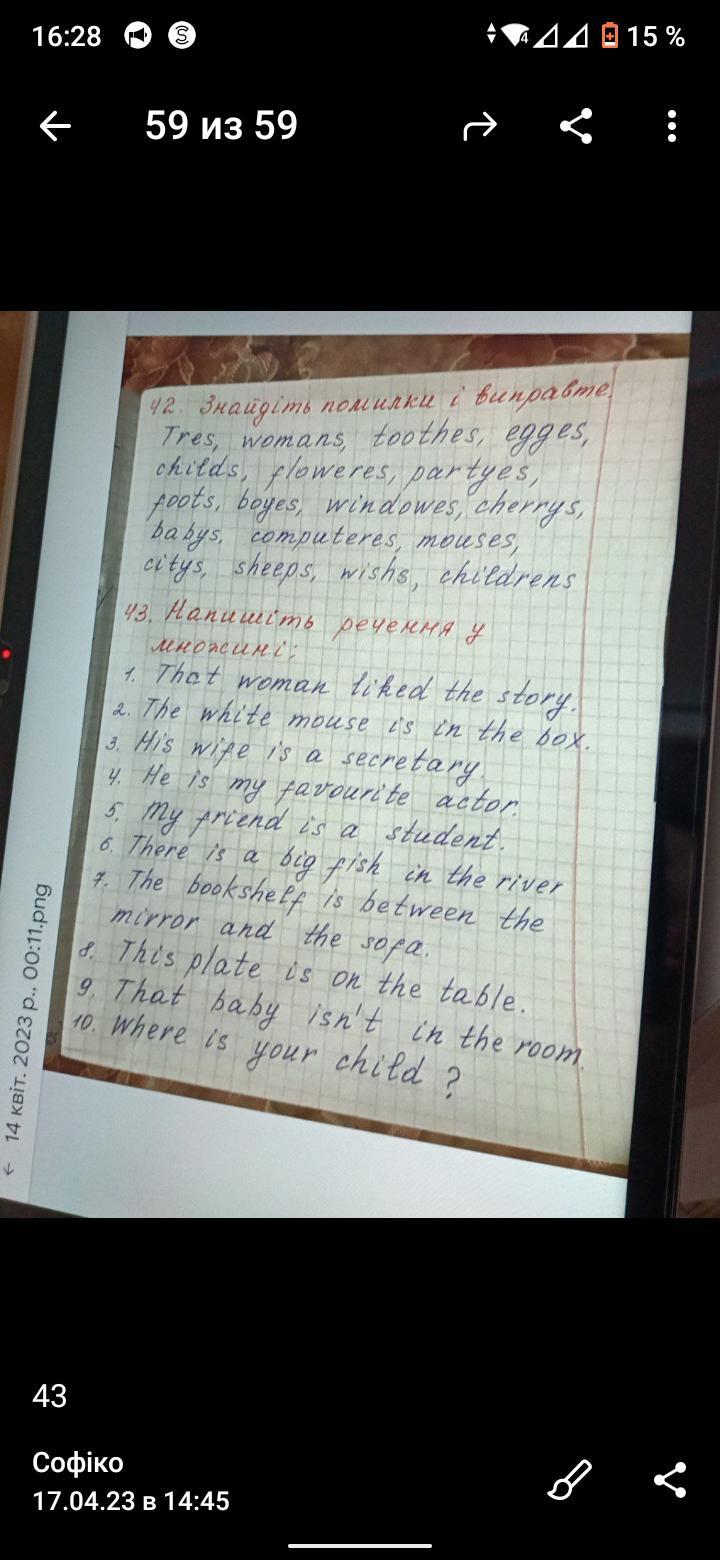 16:28
4
15 %
59 из 59
42. Знайдіть помилки і виправте.
Tres, womans, toothes, egges,
childs, floweres, partyes,
foots, boyes, windowes, cherrys,
babys, computeres, mouses,
citys, sheeps, wishs, childrens
43. Напишіть речення у
множині:
1. That woman liked the story.
2. The white mouse is in the box.
3. His wife is a secretary.
4. He is my favourite actor.
5. My friend is a student.
6. There is a big fish in the river
7. The bookshelf is between the
mirror and the sofa.
8. This plate is on the table.
9. That baby isn't in the room.
10. Where is your child ?
14 квіт. 2023 р., 00:11.png
43
Софіко
17.04.23 в 14:45